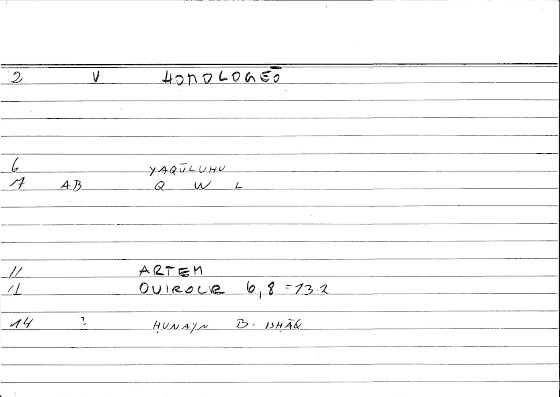 2 V HOMOLOGEŌ
6 YAQŪLUHU
7 AB Q W L
11 ARTEM
12 OUIROCR 6,8 = 13.2
14 ? ḤUNAYN B. ISḤĀQ